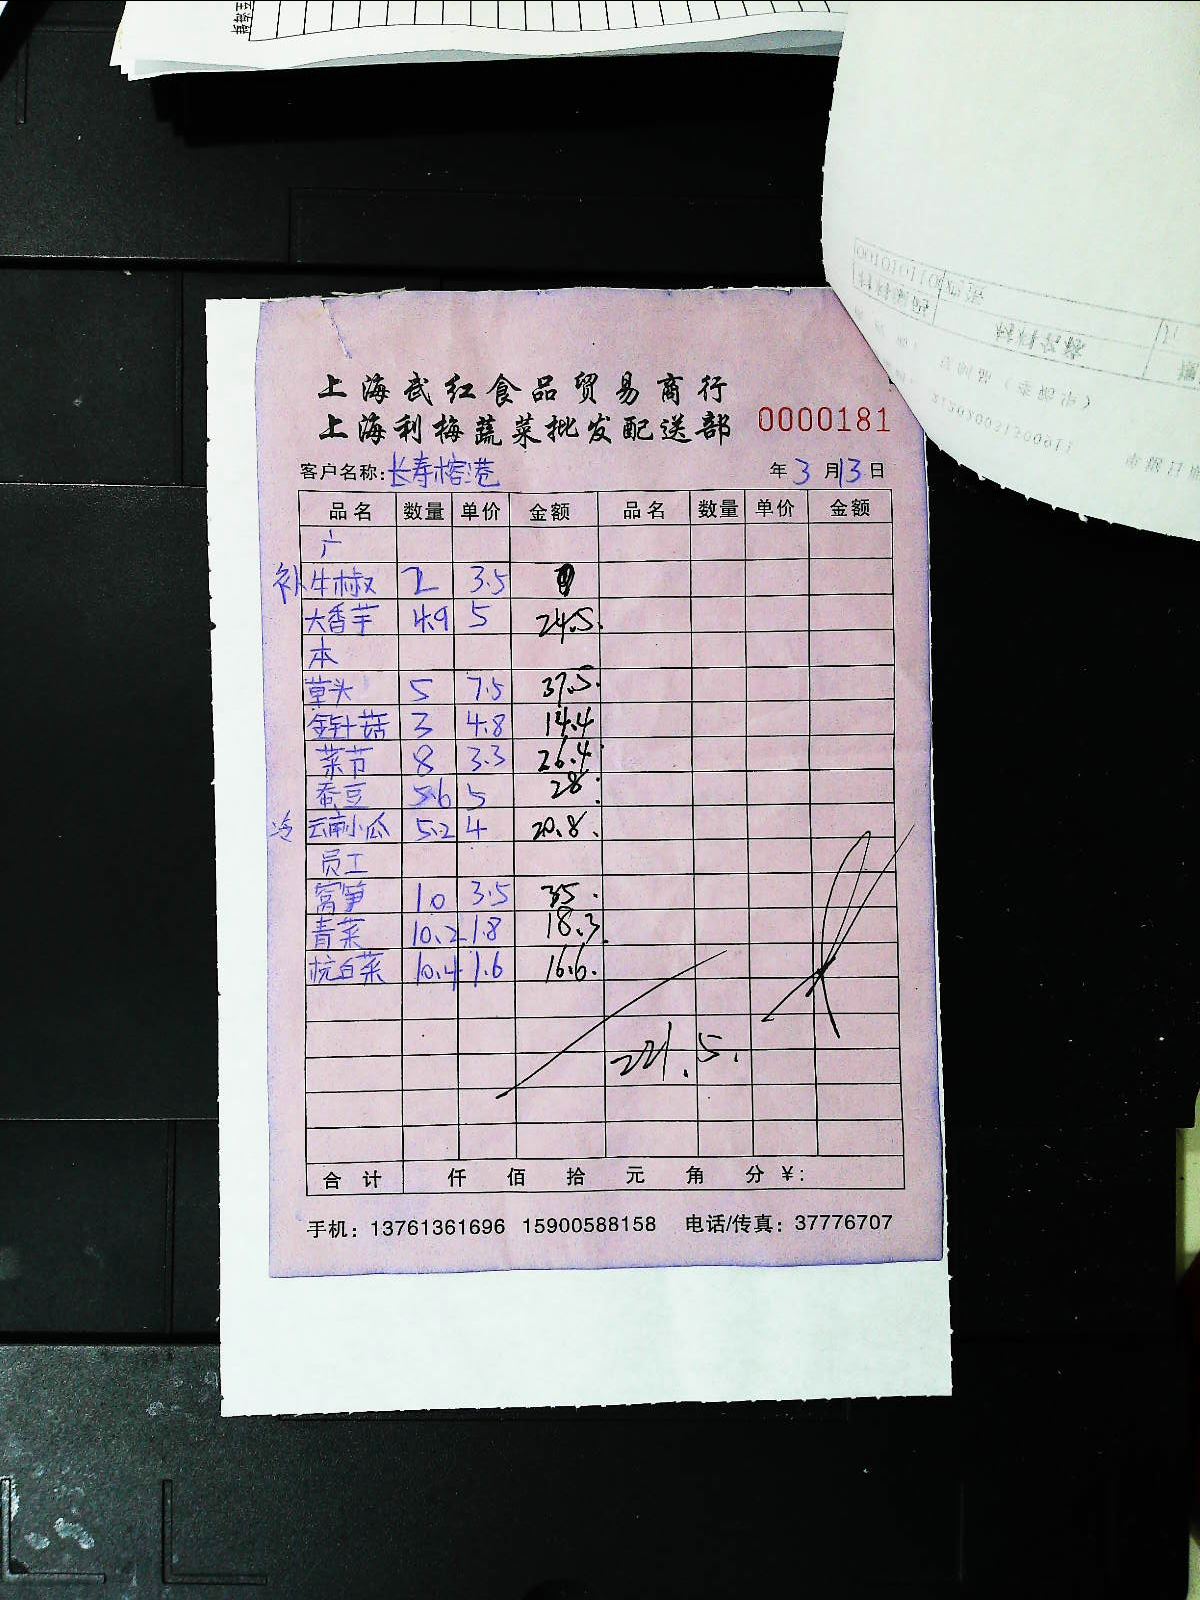 上海武红食品贸易商行
上海利梅蔬菜批发配送部 0000181
客户名称:长寿榕港 年3月13日
品名 数量 单价 金额 品名 数量 单价 金额
广
补 牛椒 2 3.5
大香芋 4.9 5 24.5.
本
草头 5 7.5 37.5.
金针菇 3 4.8 14.4
菜节 8 3.3 26.4
蚕豆 5.6 5 28
冷 云南小瓜 5.2 4 20.8.
员工
窝笋 10 3.5 35.
青菜 10.2 1.8 18.3
杭白菜 10.4 1.6 16.6.
221.5.
合计 仟 佰 拾 元 角 分 ¥:
手机: 13761361696 15900588158 电话/传真: 37776707